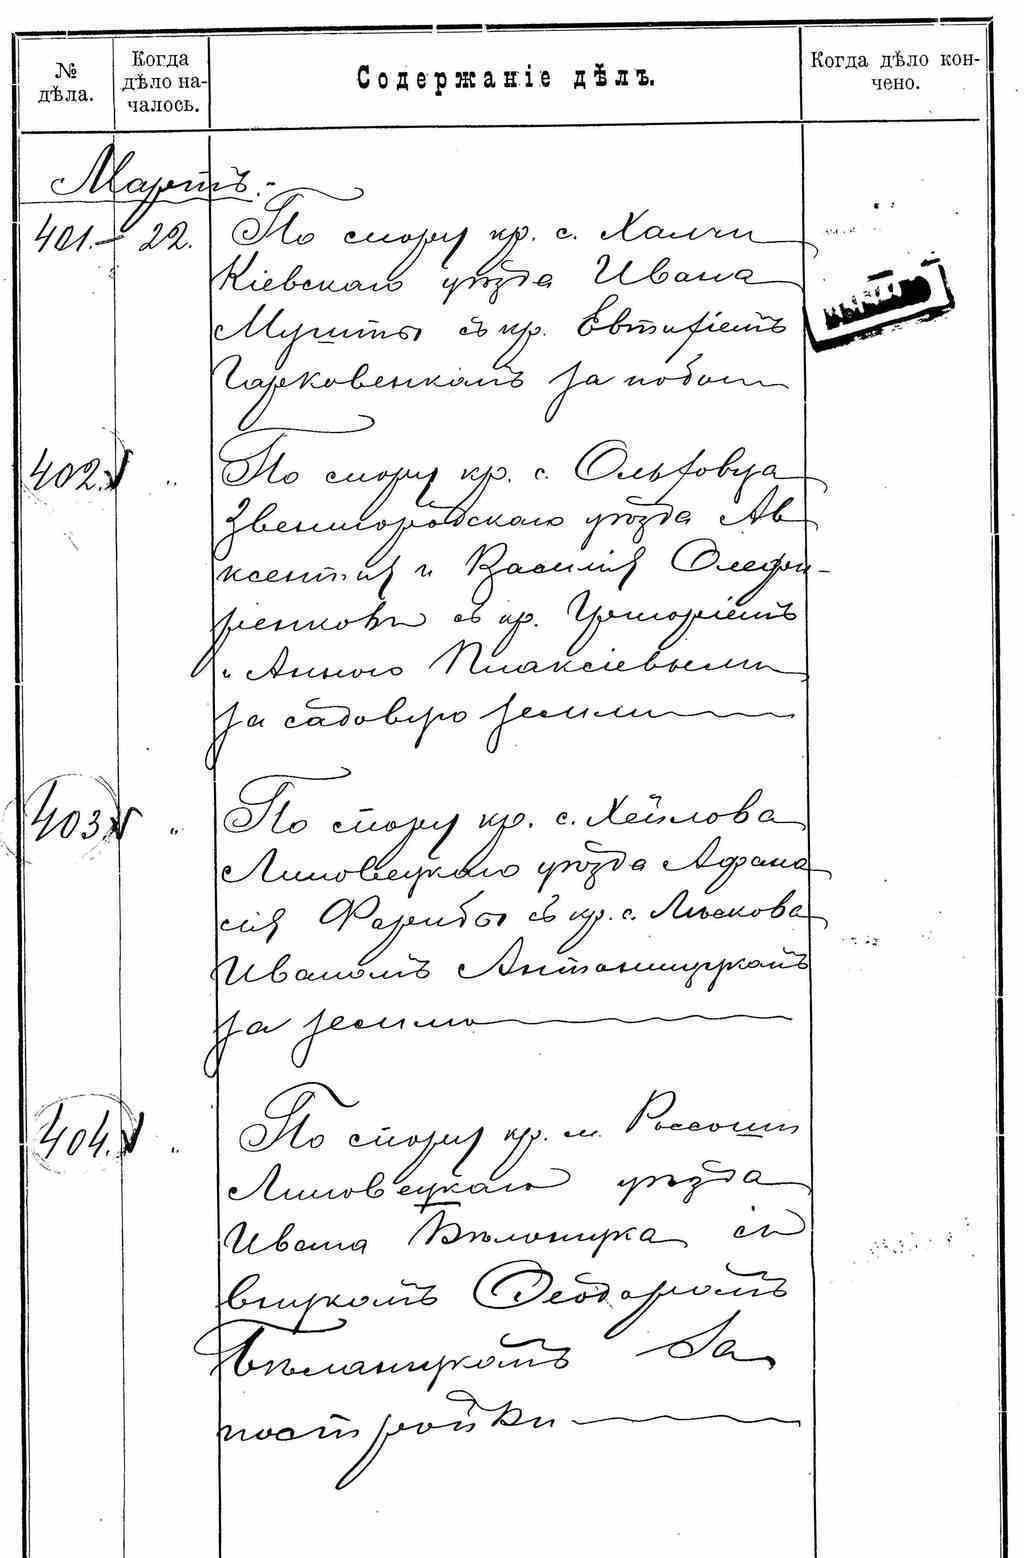 № дѣла.
Когда дѣло на-
чалось.
Содержаніе дѣлъ.
Когда дѣло кон-
чено.
Мартъ.-
401.- 22. По спору кр. с. Халчи
Кіевскаго уѣзда Ивана
Мушты съ кр. Евтифіемъ
Гарковенкомъ за побои
402. " По спору кр. с. Ольховца
Звенигородскаго уѣзда Ав
ксентия и Василія Олефи-
ренковы съ кр. Григоріемъ
и Анною Плаксіевыми
за садовую землю
403 " По спору кр. с. Хейлова
Липовецкаго уѣзда Афана
сія Фарибы съ кр. с. Лѣскова
Иваномъ Антонищукомъ
за землю
404. " По спору кр. м. Россоши
Липовецкаго уѣзда
Ивана Бѣлонцка съ
внукомъ Ѳеодоромъ
Бѣланицкомъ За
постройки